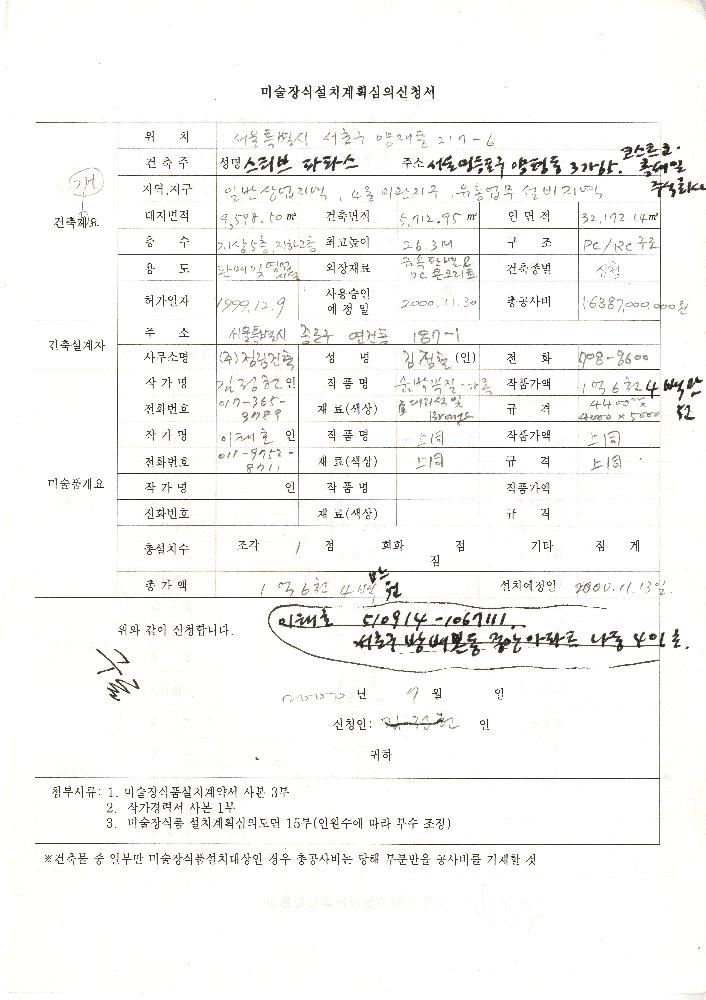 미술장식설치계획심의신청서
위 치 서울특별시 서초구 양재동 217-6
건 축 주 성명 스티브 파파스 주소 서울 영등포구 양평동 3가 65. 코스트코.
지역.지구 일반상업지역, 4종미관지구, 유통업무 설비지역 주식회사
개
건축개요
대지면적 9,598.50㎡ 건축면적 5,712.95㎡ 연면적 32,172.14㎡
층 수 지상5층, 지하2층 최고높이 26.3M 구 조 PC/RC구조
용 도 판매 및 영업시설 외장재료 건축종별 신축
허가일자 1999.12.9 사용승인예정일 2000.11.30 총공사비 16387,000,000원
건축설계자
주 소 서울특별시 종로구 연건동 187-1
사무소명 (주)정림건축 성 명 김정철(인) 전 화 708-8600
작 가 명 인 작 품 명 작품가액 1억6천4백만원
전화번호 017-365-3789 재 료(색상) 규 격 4400× 4000×5000
작 가 명 이태호 인 작 품 명 上同 작품가액 上同
전화번호 011-9752-8711 재 료(색상) 上同 규 격 上同
미술품개요
작 가 명 인 작 품 명 작품가액
전화번호 재 료(색상) 규 격
총설치수 조각 1 점 회화 점 기타 점 계
점
총 가 액 1억6천4백만원 설치예정일 2000.11.13일
이태호 510914-1067111.
위와 같이 신청합니다.
서초구 방배본동 중앙아파트 나동 401호.
2000년 7월 인
신청인: 인
귀하
첨부서류: 1. 미술장식품설치계약서 사본 3부
2. 작가경력서 사본 1부
3. 미술장식품 설치계획심의도면 15부(인원수에 따라 부수 조정)
※건축물 중 일부만 미술장식품설치대상인 경우 총공사비는 당해 부분만을 공사비를 기재할 것